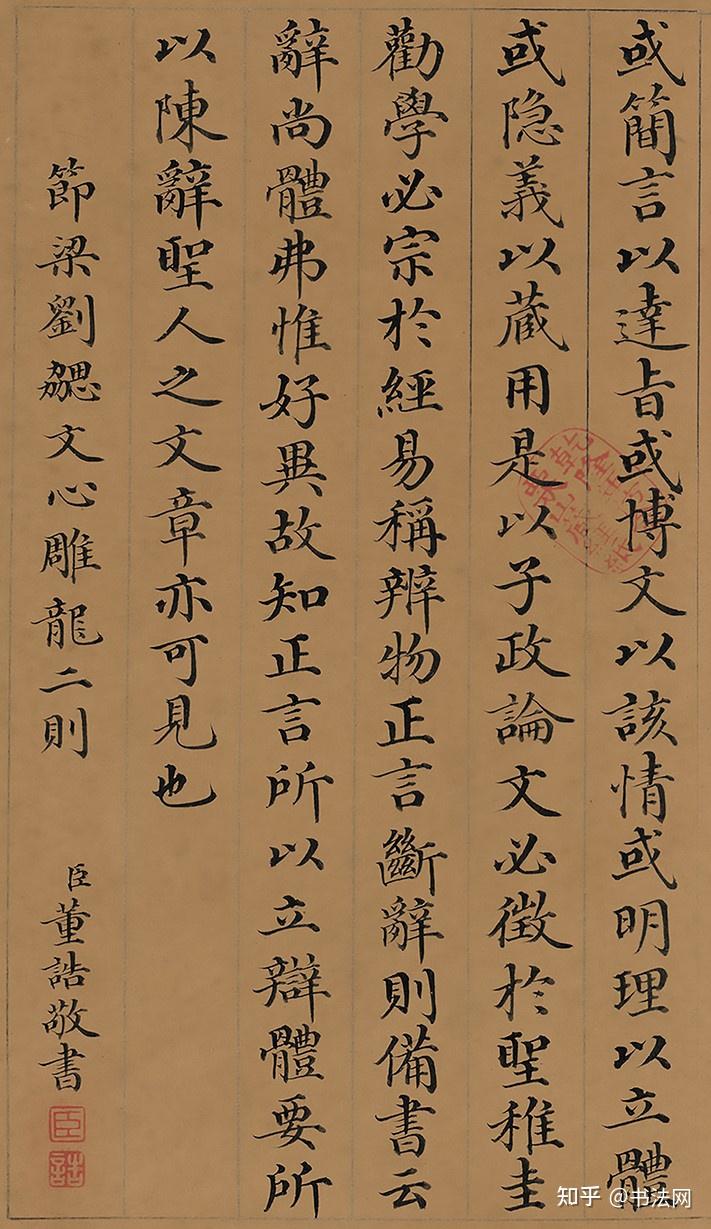 或簡言以達旨或博文以該情或明理以立體
或隐義以藏用是以子政論文必徵於聖稚圭
勸學必宗於經易稱辨物正言斷辭則備書云
辭尚體弗惟好異故知正言所以立辯體要所
以陳辭聖人之文章亦可見也
節梁劉勰文心雕龍二則
臣董誥敬書
臣
誥
知乎 @书法网